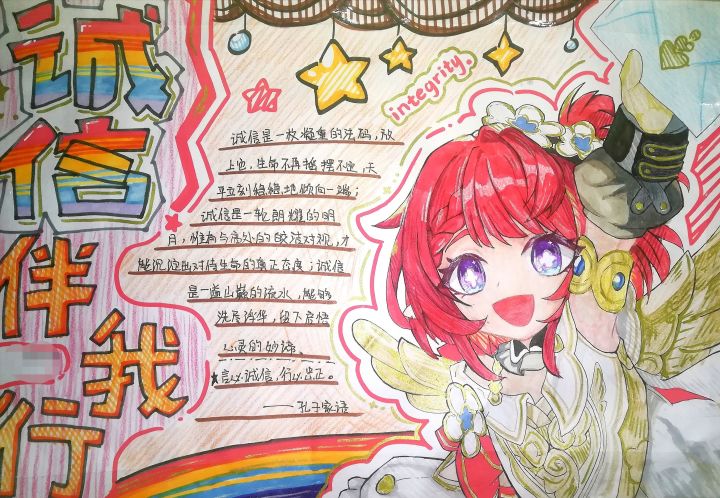 诚信
伴我行
integrity.
诚信是一枚凝重的法码，放
上它，生命不再摇摆不定，天
平立刻稳稳地倾向一端；
诚信是一轮朗耀的明
月，惟有与高处的皎洁对视，才
能沉淀出对待生命的真正态度；诚信
是一道山巅的流水，能够
洗尽浮华，留下启悟
心灵的妙谛。
言必诚信，行必忠正。
——孔子家语